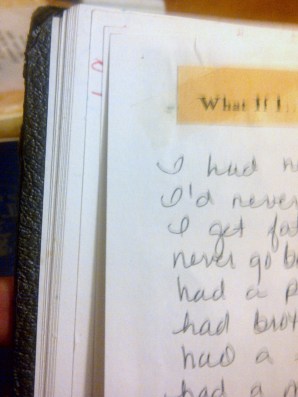 What If I...
I had n
I'd never
I get fat
never go b
had a p
had brot
had a
had a